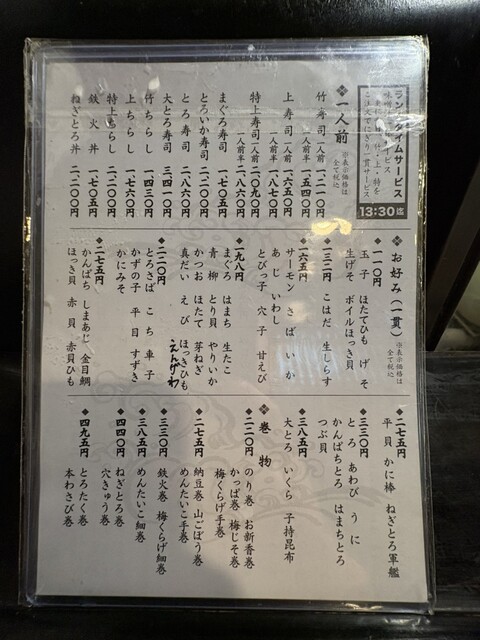 ランチタイムサービス
13:30迄
❖一人前 ※表示価格は全て税込
竹寿司 一人前 一、二一〇円
一人前半 一、五四〇円
上寿司 一人前 一、六五〇円
一人前半 一、八七〇円
特上寿司 一人前 二、〇九〇円
一人前半 二、八六〇円
まぐろ寿司 一、七六〇円
とろいか寿司 二、二〇〇円
とろ寿司 二、八六〇円
大とろ寿司 三、四一〇円
竹ちらし 一、四三〇円
上ちらし 一、七〇五円
特上ちらし 二、二〇〇円
鉄火丼 一、七〇五円
ねぎとろ丼 二、二〇〇円
❖お好み(一貫) ※表示価格は全て税込
◆一一〇円
玉子 ほたてひも げそ
生げそ ボイルほっき貝
◆一三二円 こはだ 生しらす
◆一六五円
サーモン さば いか
あじ いわし
とびっこ 穴子 甘えび
◆一九八円
まぐろ はまち 生たこ
青柳 とり貝 やりいか
かつお ほたて 芽ねぎ
真だい えび ほっきひも
えんがわ
◆二二〇円
とろさば こち 車子
かずの子 平目 すずき
かにみそ
◆二七五円
かんぱち しまあじ 金目鯛
ほっき貝 赤貝 赤貝ひも
◆二七五円
平貝 かに棒 ねぎとろ軍艦
◆三三〇円
とろ あわび うに
かんぱちとろ はまちとろ
つぶ貝
◆三八五円
大とろ いくら 子持昆布
❖巻物
◆二二〇円 のり巻 お新香巻
かっぱ巻 梅じそ巻
梅くらげ手巻
◆二七五円 納豆巻 山ごぼう巻
めんたいこ手巻
◆三三〇円 鉄火巻 梅くらげ細巻
◆三八五円 めんたいこ細巻
◆四四〇円 ねぎとろ巻
穴きゅう巻
◆四九五円 とろたく巻
本わさび巻